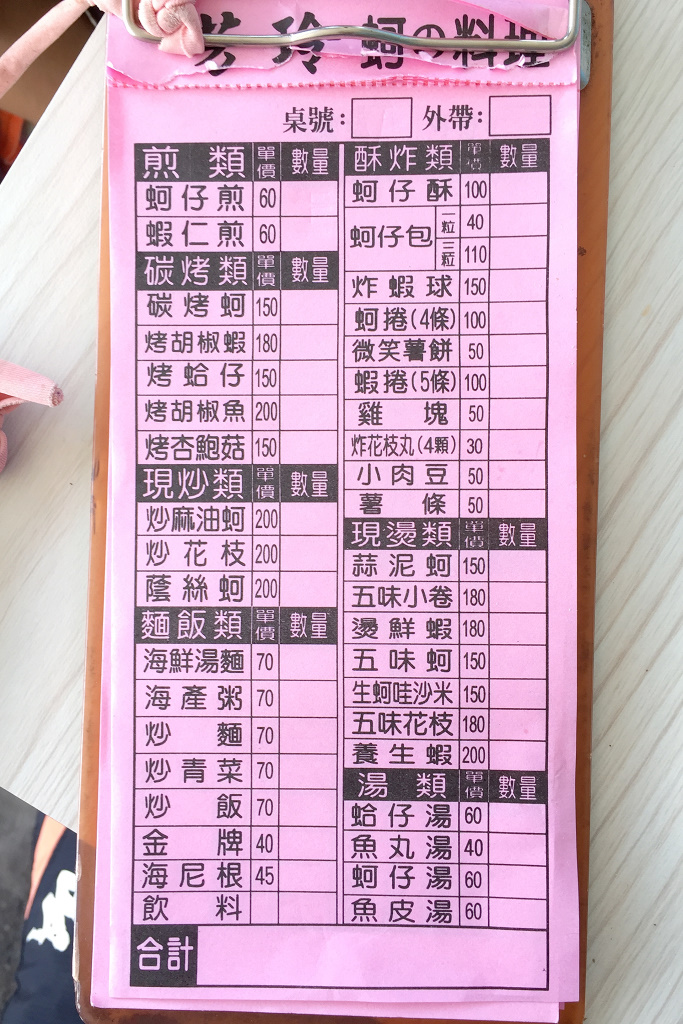 芳玲 蚵の料理
桌號： 外帶：
煎類 單價 數量
蚵仔煎 60
蝦仁煎 60
碳烤類 單價 數量
碳烤蚵 150
烤胡椒蝦 180
烤蛤仔 150
烤胡椒魚 200
烤杏鮑菇 150
現炒類 單價 數量
炒麻油蚵 200
炒花枝 200
蔭絲蚵 200
麵飯類 單價 數量
海鮮湯麵 70
海產粥 70
炒麵 70
炒青菜 70
炒飯 70
金牌 40
海尼根 45
飲料
酥炸類 單價 數量
蚵仔酥 100
蚵仔包 一粒 40
三粒 110
炸蝦球 150
蚵捲(4條) 100
微笑薯餅 50
蝦捲(5條) 100
雞塊 50
炸花枝丸(4顆) 30
小肉豆 50
薯條 50
現燙類 單價 數量
蒜泥蚵 150
五味小卷 180
燙鮮蝦 180
五味蚵 150
生蚵哇沙米 150
五味花枝 180
養生蝦 200
湯類 單價 數量
蛤仔湯 60
魚丸湯 40
蚵仔湯 60
魚皮湯 60
合計